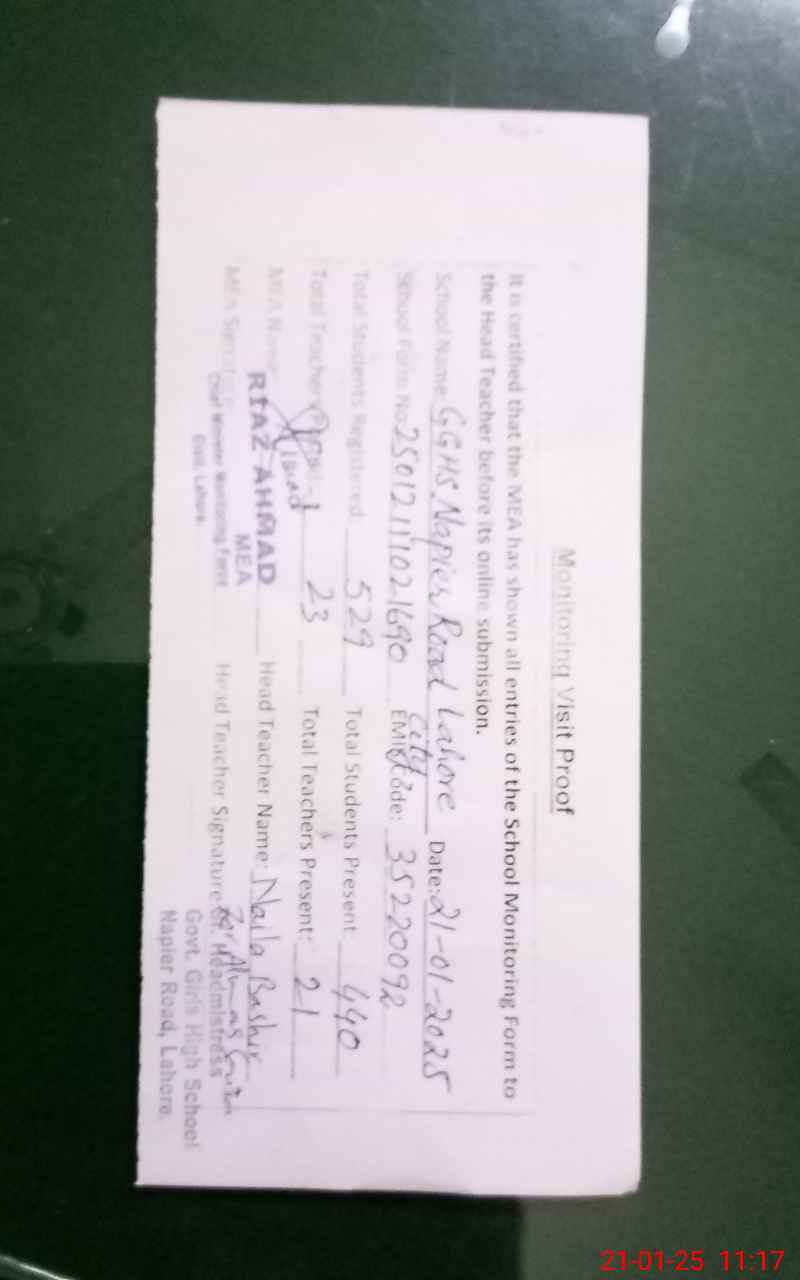 Monitoring Visit Proof
It is certified that the MEA has shown all entries of the School Monitoring Form to
the Head Teacher before its online submission.
School Name: GGHS Napier Road Lahore City Date: 21-01-2025
School Form No: 2501211021690 EMIS Code: 35220092
Total Students Registered: 529 Total Students Present: 440
Total Teachers 23 Total Teachers Present: 21
MEA Name: RIAZ AHMAD Head Teacher Name: Naila Bashir
MEA
MEA Signature: Head Teacher Signature:
Chief Minister Monitoring Force
Distt. Lahore.
Sr. Headmistress
Govt. Girls High School
Napier Road, Lahore.
21-01-25 11:17